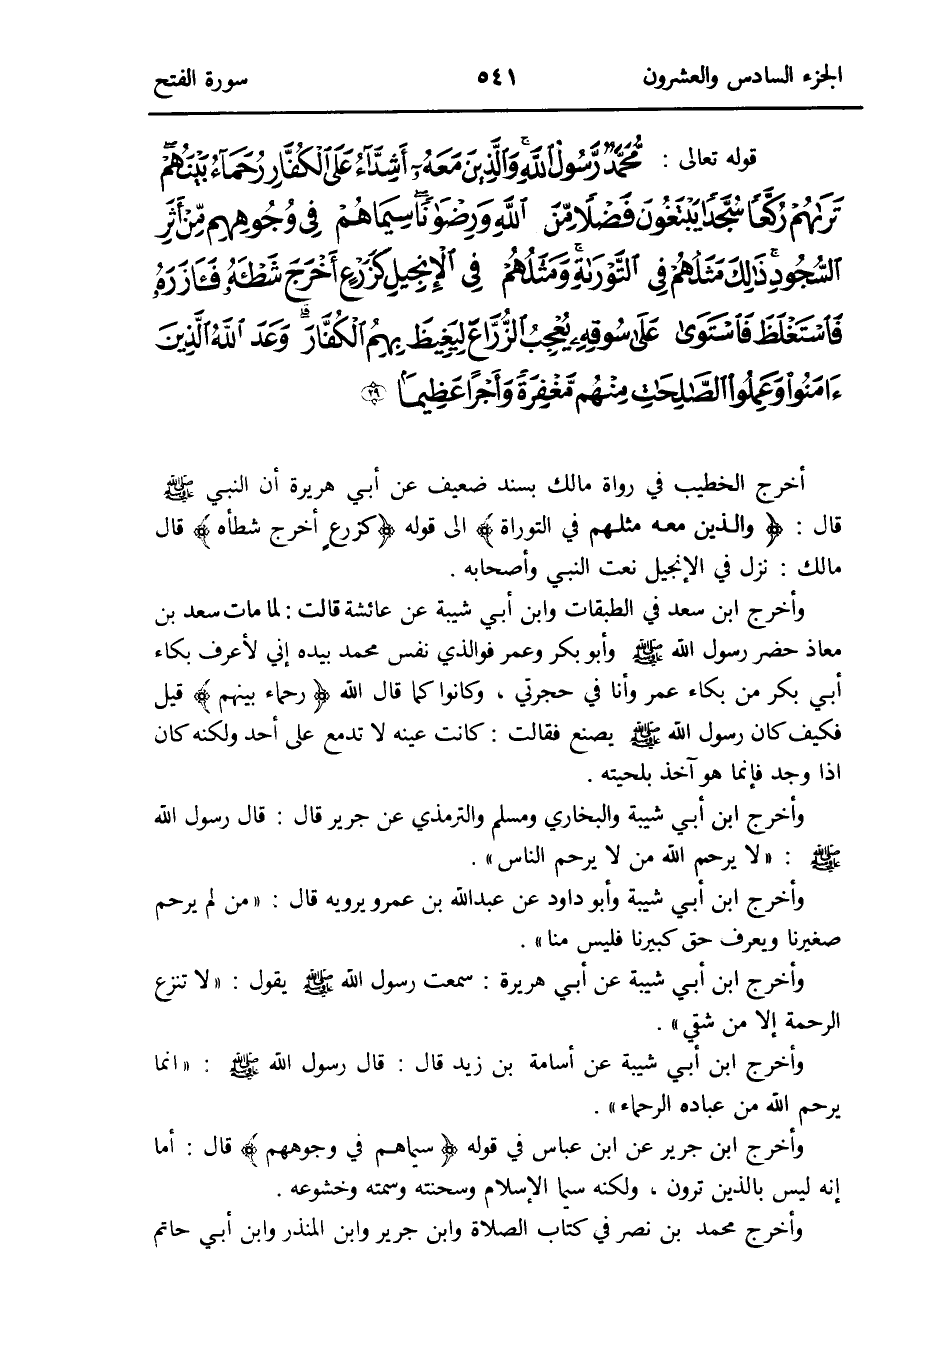 الجزء السادس والعشرون ٥٤١ سورة الفتح
قوله تعالى : مُّحَمَّدٌ رَّسُولُ ٱللَّهِ وَٱلَّذِينَ مَعَهُۥٓ أَشِدَّآءُ عَلَى ٱلْكُفَّارِ رُحَمَآءُ بَيْنَهُمْ
تَرَىٰهُمْ رُكَّعًا سُجَّدًا يَبْتَغُونَ فَضْلًا مِّنَ ٱللَّهِ وَرِضْوَٰنًا سِيمَاهُمْ فِى وُجُوهِهِم مِّنْ أَثَرِ
ٱلسُّجُودِ ذَٰلِكَ مَثَلُهُمْ فِى ٱلتَّوْرَىٰةِ وَمَثَلُهُمْ فِى ٱلْإِنجِيلِ كَزَرْعٍ أَخْرَجَ شَطْـَٔهُۥ فَـَٔازَرَهُۥ
فَٱسْتَغْلَظَ فَٱسْتَوَىٰ عَلَىٰ سُوقِهِۦ يُعْجِبُ ٱلزُّرَّاعَ لِيَغِيظَ بِهِمُ ٱلْكُفَّارَ وَعَدَ ٱللَّهُ ٱلَّذِينَ
ءَامَنُوا۟ وَعَمِلُوا۟ ٱلصَّٰلِحَٰتِ مِنْهُم مَّغْفِرَةً وَأَجْرًا عَظِيمًۢا ٢٩
أخرج الخطيب في رواة مالك بسند ضعيف عن أبي هريرة أن النبي ﷺ
قال : ﴿ والذين معه مثلهم في التوراة ﴾ الى قوله ﴿كزرعٍ أخرج شطأه ﴾ قال
مالك : نزل في الإنجيل نعت النبي وأصحابه .
وأخرج ابن سعد في الطبقات وابن أبي شيبة عن عائشة قالت : لما مات سعد بن
معاذ حضر رسول الله ﷺ وأبو بكر وعمر فوالذي نفس محمد بيده إني لأعرف بكاء
أبي بكر من بكاء عمر وأنا في حجرتي ، وكانوا كما قال الله ﴿ رحماء بينهم ﴾ قيل
فكيف كان رسول الله ﷺ يصنع فقالت : كانت عينه لا تدمع على أحد ولكنه كان
اذا وجد فإنما هو آخذ بلحيته .
وأخرج ابن أبي شيبة والبخاري ومسلم والترمذي عن جرير قال : قال رسول الله
ﷺ : «لا يرحم الله من لا يرحم الناس» .
وأخرج ابن أبي شيبة وأبو داود عن عبدالله بن عمرو يرويه قال : «من لم يرحم
صغيرنا ويعرف حق كبيرنا فليس منا» .
وأخرج ابن أبي شيبة عن أبي هريرة : سمعت رسول الله ﷺ يقول : «لا تنزع
الرحمة إلا من شقي» .
وأخرج ابن أبي شيبة عن أسامة بن زيد قال : قال رسول الله ﷺ : «انما
يرحم الله من عباده الرحماء» .
وأخرج ابن جرير عن ابن عباس في قوله ﴿ سيماهم في وجوههم ﴾ قال : أما
إنه ليس بالذين ترون ، ولكنه سيما الإسلام وسحنته وسمته وخشوعه .
وأخرج محمد بن نصر في كتاب الصلاة وابن جرير وابن المنذر وابن أبي حاتم